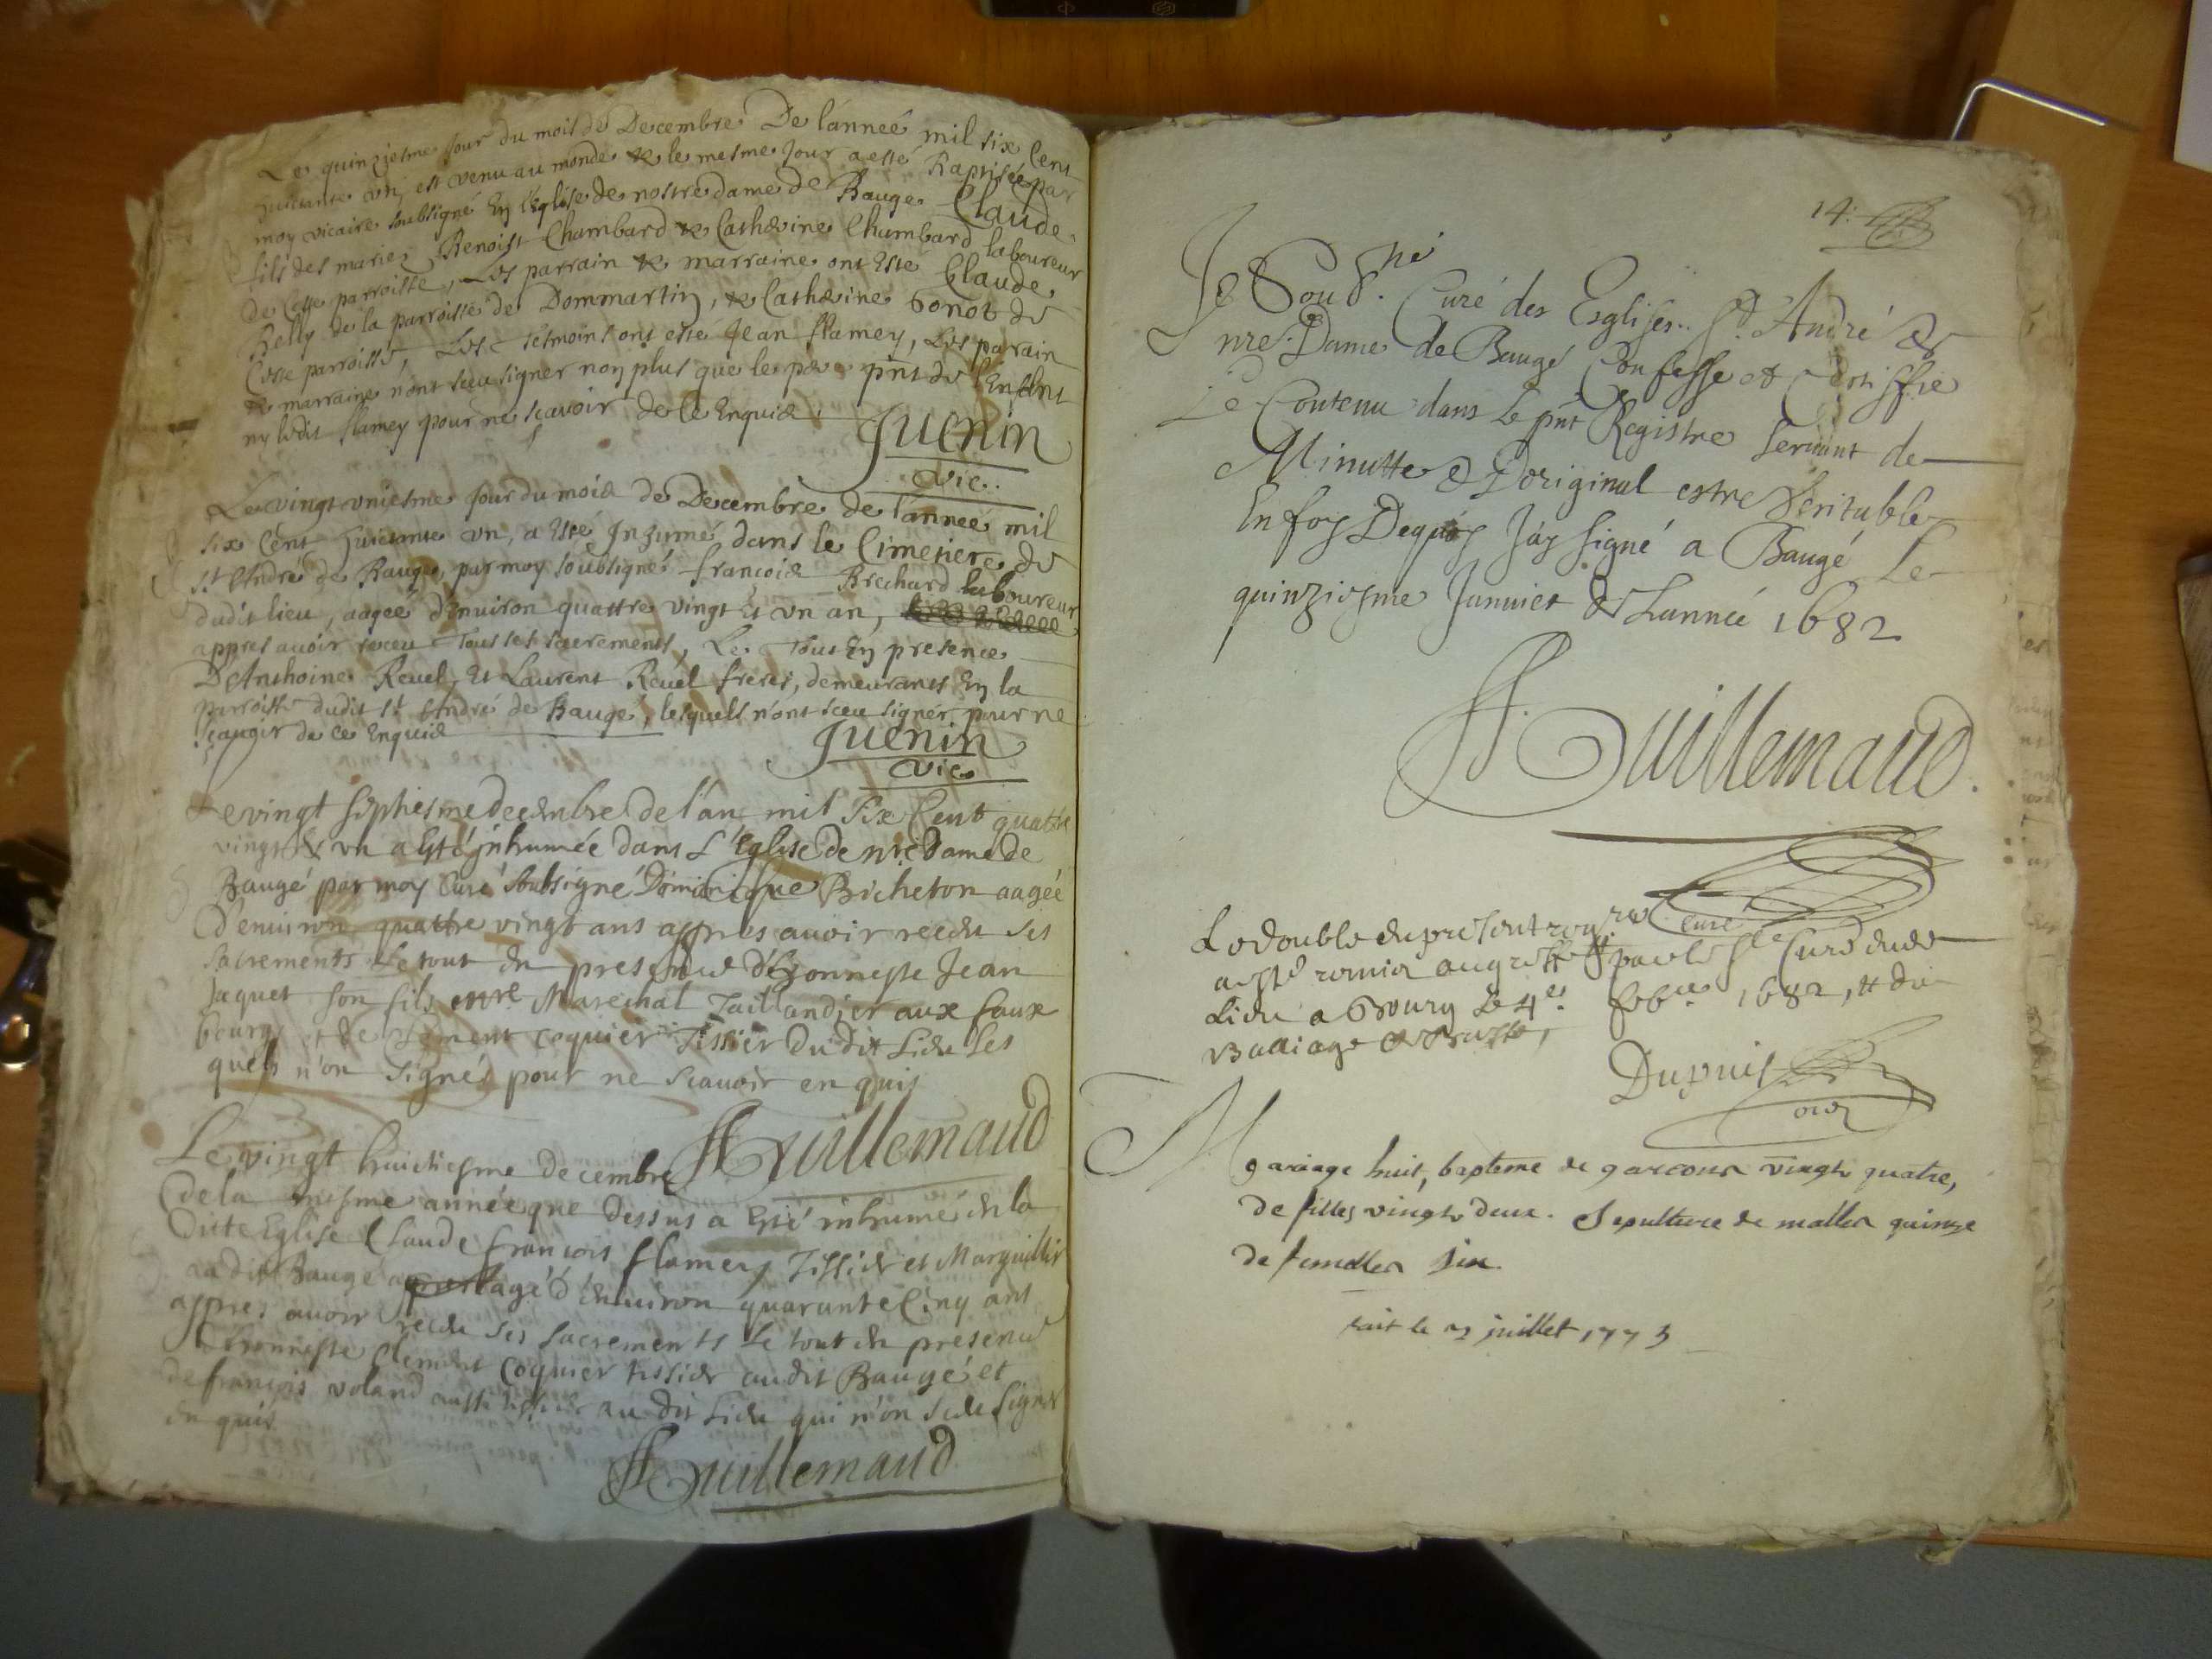 Le quinziesme Jour du mois de Decembre De lanneé mil six Cent
huictante un, est venu au monde & le mesme Jour a esté Baptisé par
moy vicaire soubsigné En l'Eglise de nostre dame de Baugé Claude
fils des mariés Benoist Chambard & Catherine Chambard laboureur
de Cette parroisse, Les parrain & marraine ont Esté Claude
Relly de la parroisse de Dommartin, & Catherine Bonot de
Cette parroisse, Les tesmoins ont esté Jean flamey, Les parain
& marraine n'ont sceu signer non plus que le pere pnt de l'Enfant
ny ledit flamey pour ne scavoir de ce Enquis
Juenin
vic.
Le vingt uniesme Jour du mois de Decembre de l'anneé mil
six Cent huictante un, a Esté Inhumé dans le Cimetiere de
st André de Baugé, par moy soubsigné françois Brechard laboureur
dudit lieu, aageé d'enuiron quattre vingt Et un an,
appres auoir receu Tous ses sacrements, Le Tout En presence
D'Anthoine Reuel, Et Laurent Reuel freres, demeurants En la
parroisse dudit st André de Baugé, lesquels n'ont sceu signer pour ne
scauoir de ce Enquis
Juenin
vic
Le vingt septiesme decembre de l'an mil Six Cent quatre
vingt & un a Esté inhumée dans L'Eglise de nre Dame de
Baugé par moy Curé soubsigné Dominique Bricheton aagée
D'enuiron quattre vingt ans appres auoir receu ses
sacrements Le tout en presence d'honneste Jean
Jaquet son fils mre Marechal Taillandier aux faux
bourg et de Clement Coquier Tissier du dit Lieu Les
quels n'on signés pour ne scauoir en quis
Guillemaud
Le vingt huictiesme decembre
de la mesme année que dessus a Esté inhumé en la
Dite Eglise Claude françois flamey Tissier et Marguillier
au dit Baugé agé d'enuiron quarante Cinq ans
appres auoir receu ses sacrements Le tout en presence
d'honneste Clement Coquier tissier audit Baugé et
de françois voland aussi tissier au dit Lieu qui n'on sceu signer
en quis
Guillemaud
14.
Je Soub.né Curé des Eglises St André &
nre Dame de Baugé Confesse et Certiffie
Le Contenu dans Le pnt Registre Servant de
Minutte & D'original estre Veritable
En foy Dequoy J'ay signé a Baugé Le
quinziesme Januier de L'année 1682
Guillemaud.
Curé
Le double du present reg.re
a esté remis au greffe par le Sr Curé dud.
Lieu a Bourg Le 4es febr. 1682,
Balliage de Bresse,
Dupuis
Mariage huit, bapteme de garcons vingt quatre,
de filles vingt deux. Sepulture de malles quinze
de femelles six.
fait le juillet 1773